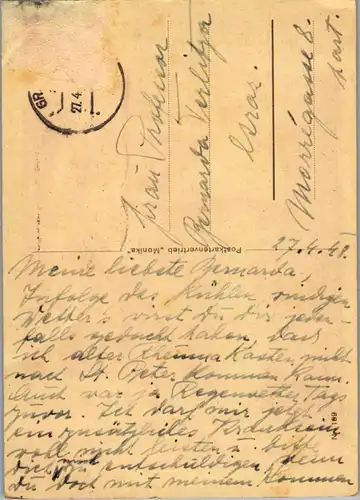 GR
27.4
Frau Professor
Bernarda
Graz.
Morrégasse 8.
part.
Postkartenvertrieb „Monika"
27.4.48.
Meine liebste Bernarda,
Infolge des kühlen, windigen
Wetter's wirst Du Dir jeden-
falls gedacht haben, dass
ich alter Kasten nicht
nach St. Peter kommen kann.
Auch war ja Regenwetter tags
zuvor. Ich darf mir jetzt
ein zusätzliches
wohl nicht leisten u. bitte
Dich zu entschuldigen, denn
Du doch mit meinem Kommen